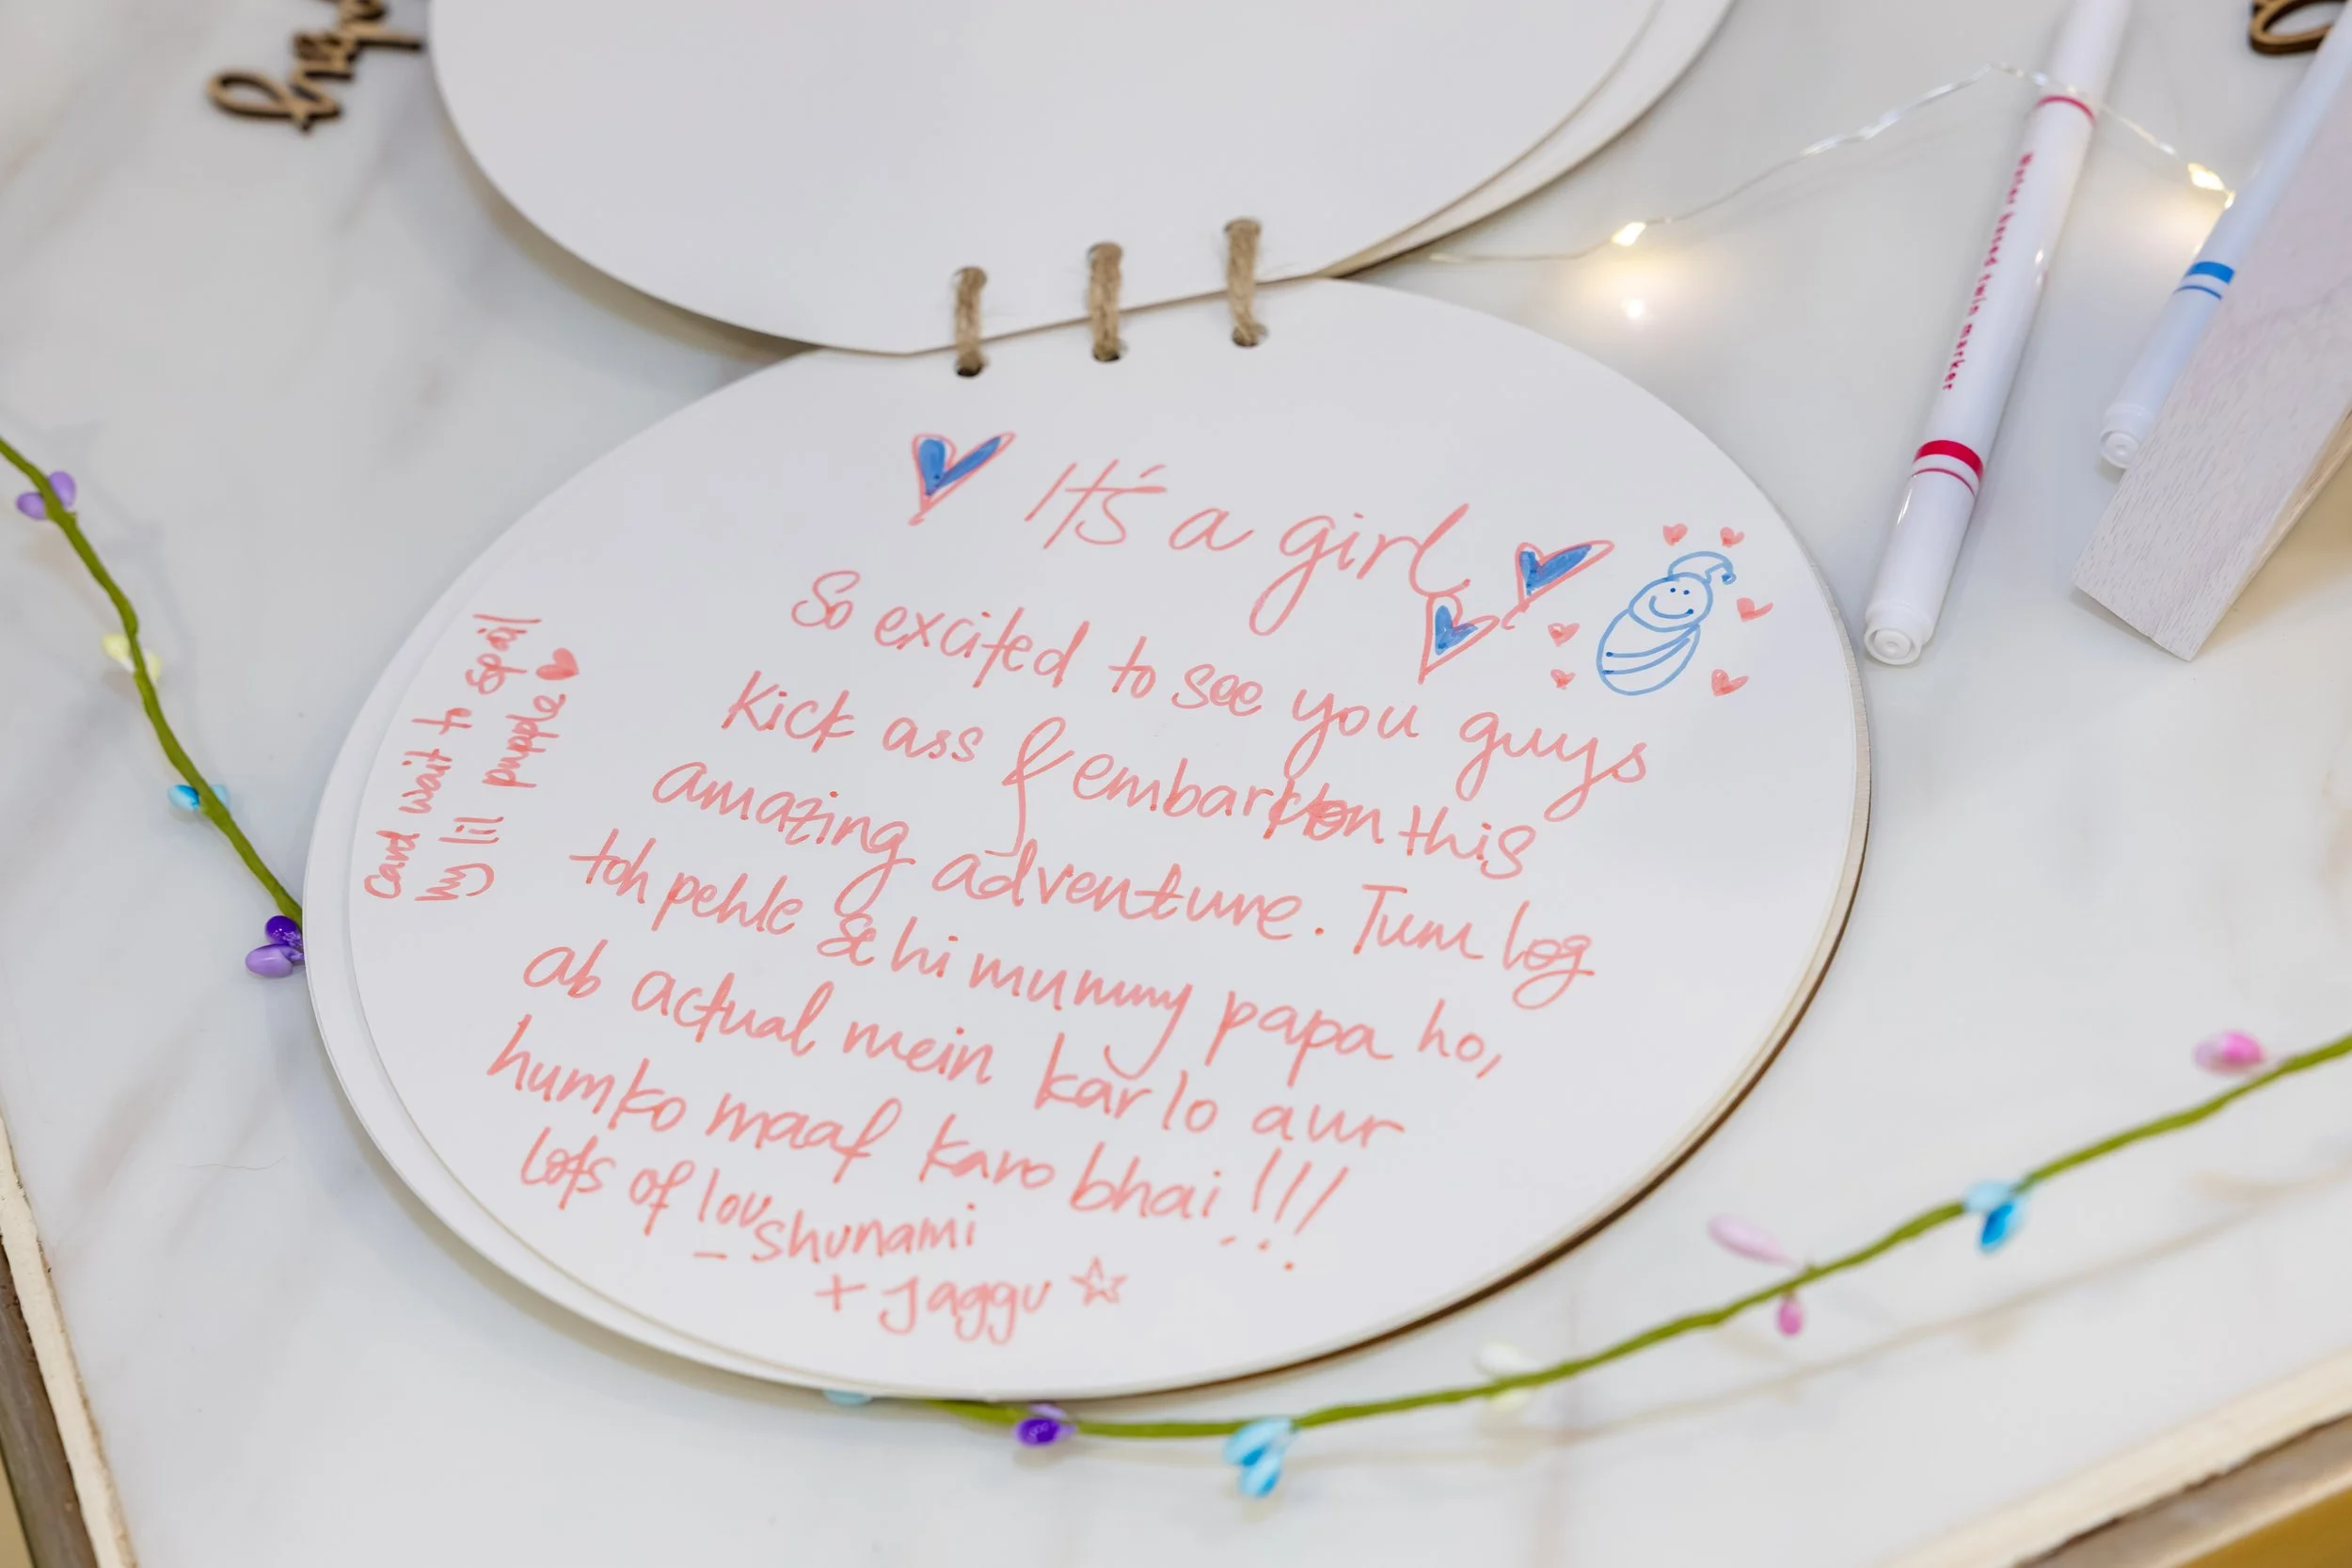 It's a girl
So excited to see you guys
kick ass & embark on this
amazing adventure. Tum log
toh pehle se hi mummy papa ho,
ab actual mein kar lo aur
humko maaf karo bhai !!!
lots of lov
- Shunami
+ Jaggu
cant wait to spoil
my lil pupple
Water based stain marker